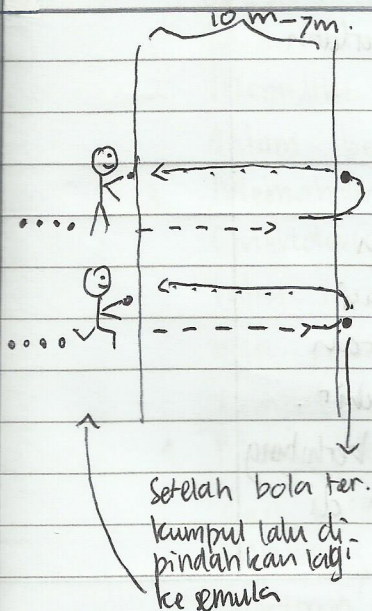 10 m - 7 m.
Setelah bola ter.
kumpul lalu di-
pindahkan lagi
ke semula